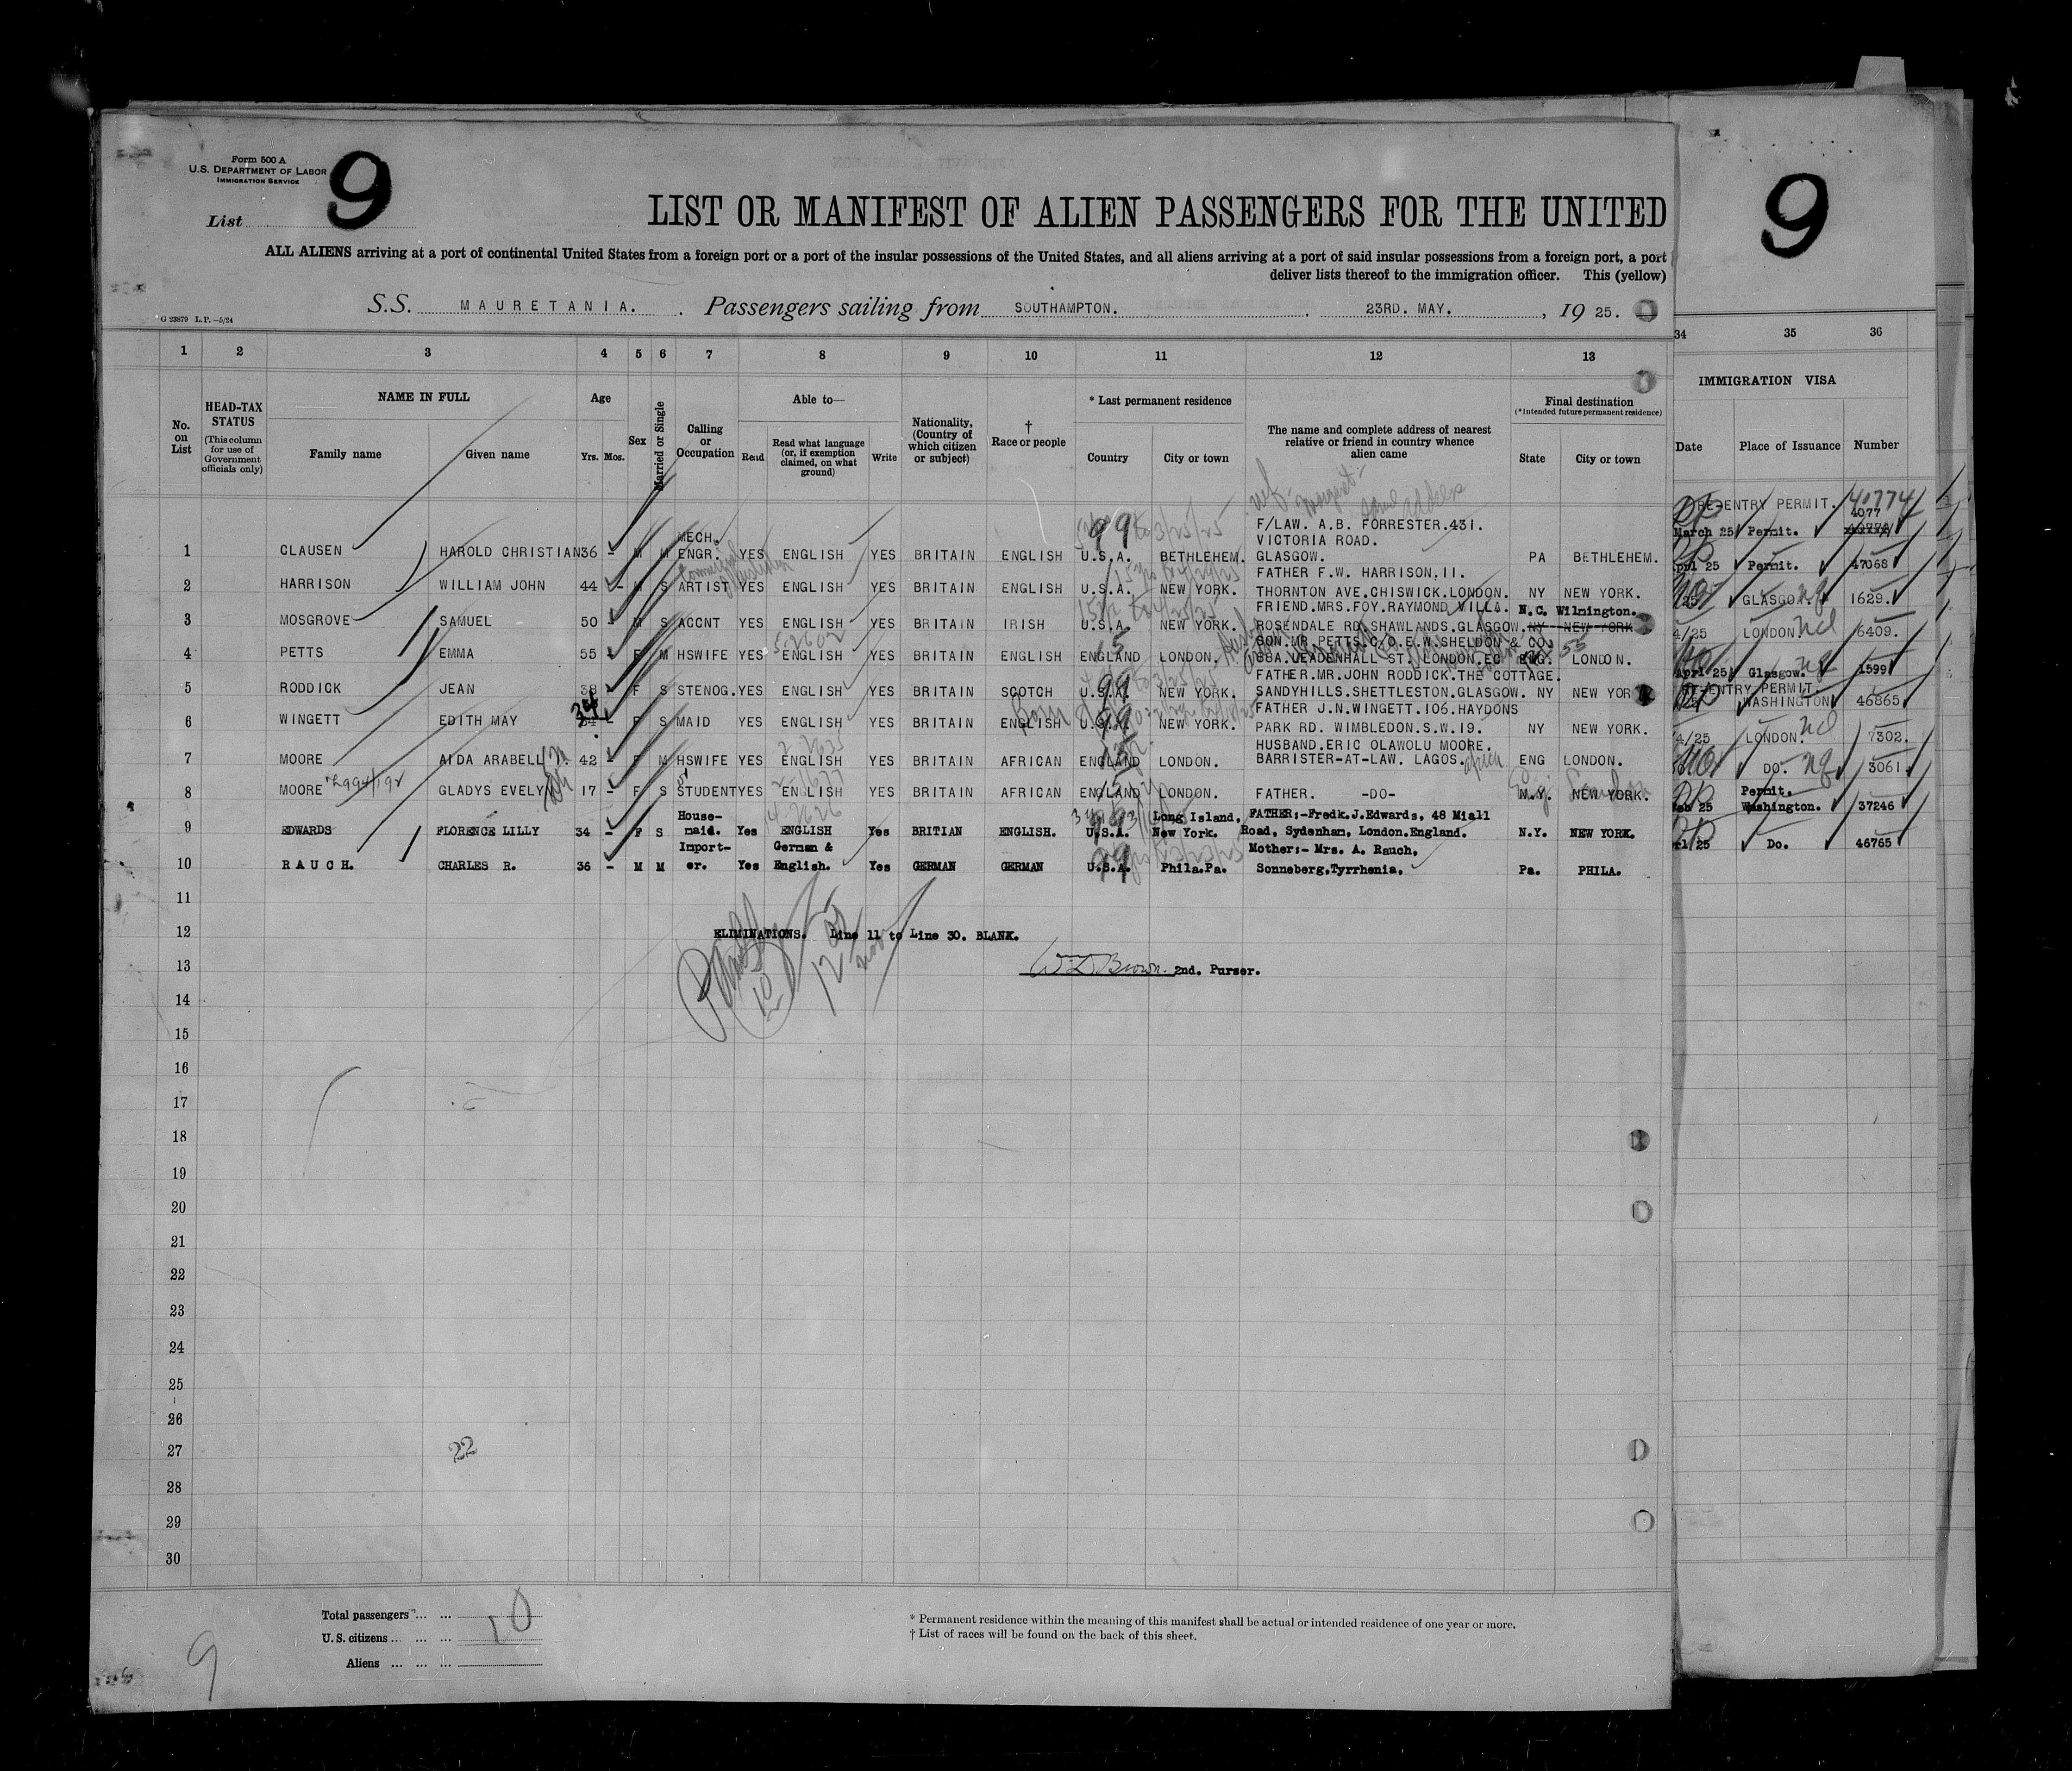 Form 500 A
U.S. DEPARTMENT OF LABOR
IMMIGRATION SERVICE
List 9
9
LIST OR MANIFEST OF ALIEN PASSENGERS FOR THE UNITED
ALL ALIENS arriving at a port of continental United States from a foreign port or a port of the insular possessions of the United States, and all aliens arriving at a port of said insular possessions from a foreign port, a port
deliver lists thereof to the immigration officer. This (yellow)
S.S. MAURETANIA. Passengers sailing from SOUTHAMPTON. 23RD. MAY. , 19 25.
G 23879 L.P.—5/24
1 2 3 4 5 6 7 8 9 10 11 12 13 34 35 36
No. on List
HEAD-TAX STATUS
(This column for use of Government officials only)
NAME IN FULL
Family name Given name
Age
Yrs. Mos.
Sex
Married or Single
Calling or Occupation
Able to—
Read
Read what language (or, if exemption claimed, on what ground)
Write
Nationality, (Country of which citizen or subject)
† Race or people
* Last permanent residence
Country City or town
The name and complete address of nearest relative or friend in country whence alien came
Final destination
(*Intended future permanent residence)
State City or town
IMMIGRATION VISA
Date Place of Issuance Number
RE-ENTRY PERMIT. 40774
4077
March 25 Permit.
1 CLAUSEN HAROLD CHRISTIAN 36 - M M MECH. ENGR. YES ENGLISH YES BRITAIN ENGLISH U.S.A. BETHLEHEM. F/LAW. A.B. FORRESTER.431. VICTORIA ROAD. GLASGOW. PA BETHLEHEM.
pril 25 Permit. 47068
2 HARRISON WILLIAM JOHN 44 - M S ARTIST YES ENGLISH YES BRITAIN ENGLISH U.S.A. NEW YORK. FATHER F.W. HARRISON.11. THORNTON AVE.CHISWICK.LONDON. NY NEW YORK.
/25 GLASGOW. 1629.
3 MOSGROVE SAMUEL 50 - M S ACCNT YES ENGLISH YES BRITAIN IRISH U.S.A. NEW YORK. FRIEND.MRS.FOY.RAYMOND VILLA. ROSENDALE RD.SHAWLANDS.GLASGOW. N.C. Wilmington. NY NEW YORK
4/25 LONDON. 6409.
4 PETTS EMMA 55 - F M HSWIFE YES ENGLISH YES BRITAIN ENGLISH ENGLAND LONDON. SON.MR.PETTS.C/O.E.W.SHELDON & CO. LEADENHALL ST. LONDON.EC ENG. LONDON.
April 25 Glasgow. 1599
5 RODDICK JEAN 38 - F S STENOG. YES ENGLISH YES BRITAIN SCOTCH U.S.A. NEW YORK. FATHER.MR.JOHN RODDICK.THE COTTAGE. SANDYHILLS.SHETTLESTON.GLASGOW. NY NEW YORK
RE-ENTRY PERMIT.
WASHINGTON 46865
6 WINGETT EDITH MAY 34 F S MAID YES ENGLISH YES BRITAIN ENGLISH U.S.A. NEW YORK. FATHER J.N.WINGETT.106.HAYDONS PARK RD. WIMBLEDON.S.W.19. NY NEW YORK.
4/25 LONDON. 7302.
7 MOORE AIDA ARABELLA 42 - F M HSWIFE YES ENGLISH YES BRITAIN AFRICAN ENGLAND LONDON. HUSBAND.ERIC OLAWOLU MOORE. BARRISTER-AT-LAW. LAGOS. ENG LONDON.
DO. 3061.
8 MOORE GLADYS EVELYN 17 - F S STUDENT YES ENGLISH YES BRITAIN AFRICAN ENGLAND LONDON. FATHER. -DO- N.Y. NEW YORK.
Permit.
25 Washington. 37246
9 EDWARDS FLORENCE LILLY 34 - F S House-maid. Yes ENGLISH Yes BRITIAN ENGLISH. U.S.A. Long Island, New York. FATHER:-Fredk.J.Edwards, 48 Miall Road, Sydenham, London.England. N.Y. NEW YORK.
25 Do. 46765
10 RAUCH. CHARLES R. 36 - M M Import-er. Yes German & English. Yes GERMAN GERMAN U.S.A. Phila.Pa. Mother:- Mrs. A. Rauch, Sonneberg.Tyrrhenia. Pa. PHILA.
11
12 ELIMINATIONS. Line 11 to Line 30. BLANK.
13 W.D. Brown. 2nd. Purser.
14
15
16
17
18
19
20
21
22
23
24
25
26
27 22
28
29
30
Total passengers ... ... 10
U.S. citizens ... ... ...
Aliens ... ... ...
* Permanent residence within the meaning of this manifest shall be actual or intended residence of one year or more.
† List of races will be found on the back of this sheet.
9